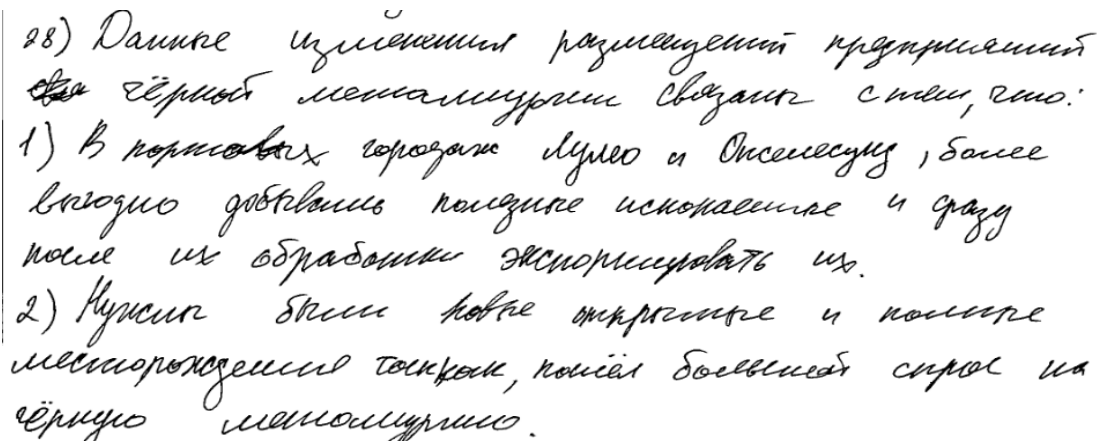 28) Данные изменения размещений предприятий
чёрной металлургии связаны с тем, что:
1) В портовых городах Лулео и Окселесунд, более
выгодно добывать полезные ископаемые и сразу
после их обработки экспортировать их.
2) Нужны были новые открытые и полные
месторождения так как, пошёл большой спрос на
чёрную металлургию.